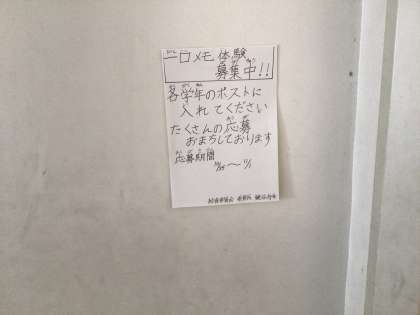 一口メモ体験
募集中!!
各学年のポストに
入れてください
たくさんの応募
おまちしております
応募期間
〜